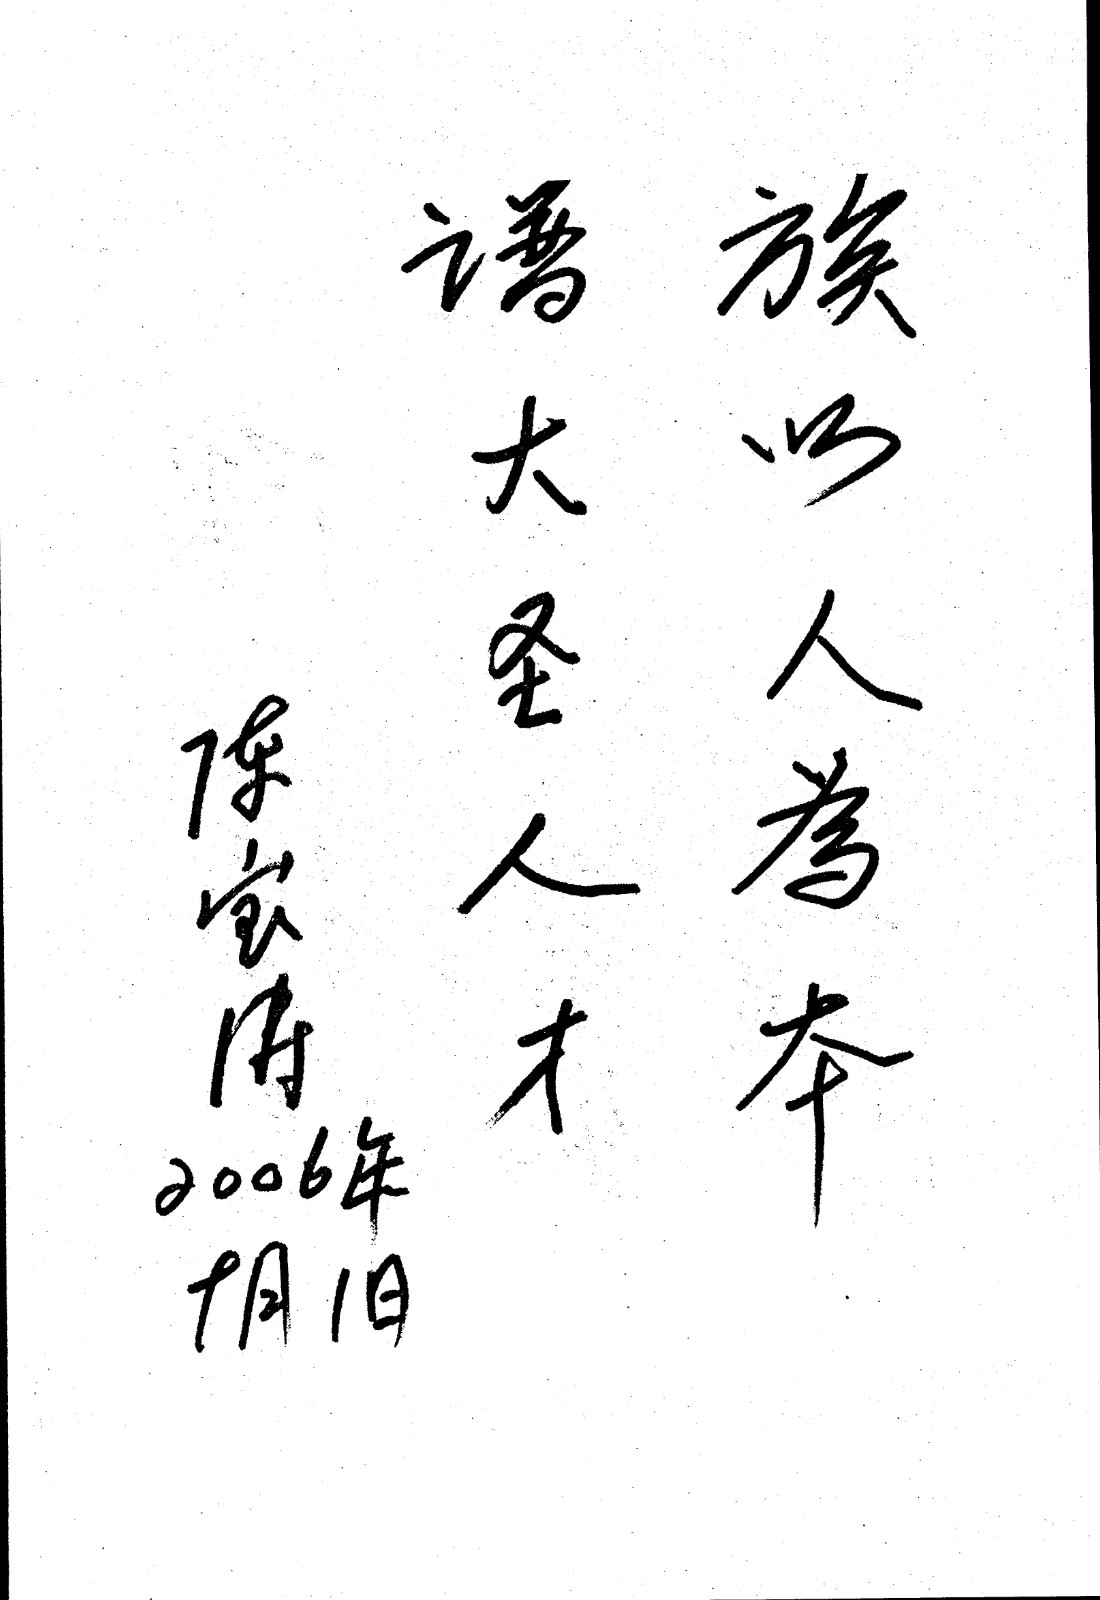 族以人為本
谱大圣人才
陈宝涛
2006年
十月1日